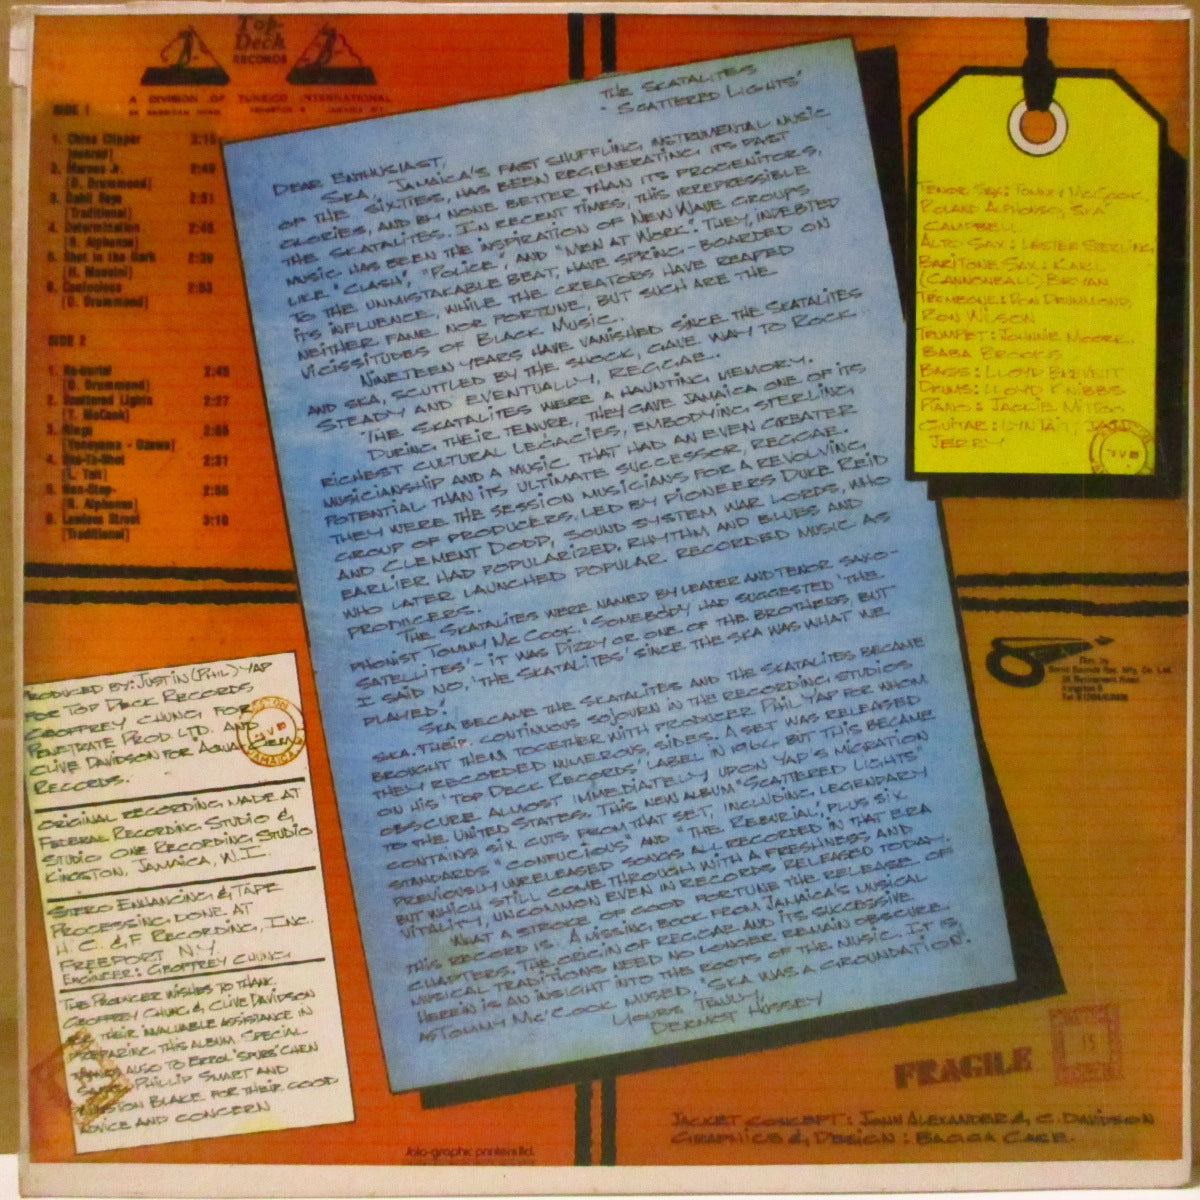 Top-
Deck
RECORDS
A DIVISION OF TUNEICO INTERNATIONAL
SIDE 1
1. China Clipper 3:15
2. Marcus Jr. 2:40
[D. Drummond]
3. 2:51
[Traditional]
4. Determination 2:46
[R. Alphonso]
5. Shot in the Dark 2:39
[H. Mancini]
6. Confucious 2:53
[D. Drummond]
SIDE 2
1. Re-burial 2:45
[D. Drummond]
2. Scattered Lights 2:27
[T. McCook]
3. Ringo
4. Ska-Ta-Shot 2:31
[L. Tait]
5. Non-Stop
[R. Alphonso]
6. Lawless Street 3:10
[Traditional]
THE SKATALITES
"SCATTERED LIGHTS"
DEAR ENTHUSIAST,
SKA, JAMAICA'S FAST SHUFFLING INSTRUMENTAL MUSIC
OF THE SIXTIES, HAS BEEN REGENERATING ITS PAST
GLORIES, AND BY NONE BETTER THAN ITS PROGENITORS,
THE SKATALITES. IN RECENT TIMES, THIS IRREPRESSIBLE
MUSIC HAS BEEN THE INSPIRATION OF NEW WAVE GROUPS
LIKE "CLASH", "POLICE," AND "MEN AT WORK". THEY, INDEBTED
TO THE UNMISTAKABLE BEAT, HAVE SPRING-BOARDED ON
ITS INFLUENCE, WHILE THE CREATORS HAVE REAPED
NEITHER FAME NOR FORTUNE, BUT SUCH ARE THE
VICISSITUDES OF BLACK MUSIC.
NINETEEN YEARS HAVE VANISHED SINCE THE SKATALITES
AND SKA, SCUTTLED BY THE SHOCK, GAVE WAY TO ROCK
STEADY AND EVENTUALLY, REGGAE.
THE SKATALITES WERE A HAUNTING MEMORY.
DURING THEIR TENURE, THEY GAVE JAMAICA ONE OF ITS
RICHEST CULTURAL LEGACIES, EMBODYING STERLING
MUSICIANSHIP AND A MUSIC THAT HAD AN EVEN GREATER
POTENTIAL THAN ITS ULTIMATE SUCCESSOR, REGGAE.
THEY WERE THE SESSION MUSICIANS FOR A REVOLVING
GROUP OF PRODUCERS, LED BY PIONEERS DUKE REID
AND CLEMENT DODD, SOUND SYSTEM WAR LORDS, WHO
EARLIER HAD POPULARIZED, RHYTHM AND BLUES AND
WHO LATER LAUNCHED POPULAR RECORDED MUSIC AS
PRODUCERS.
THE SKATALITES WERE NAMED BY LEADER AND TENOR SAXO-
PHONIST TOMMY MC COOK. "SOMEBODY HAD SUGGESTED 'THE
SATELLITES' - IT WAS DIZZY OR ONE OF THE BROTHERS BUT
I SAID NO, 'THE SKATALITES' SINCE THE SKA WAS WHAT WE
PLAYED."
SKA BECAME THE SKATALITES AND THE SKATALITES BECAME
SKA. THEIR CONTINUOUS SOJOURN IN THE RECORDING STUDIOS
BROUGHT THEM TOGETHER WITH PRODUCER PHIL YAP FOR WHOM
THEY RECORDED NUMEROUS SIDES. A SET WAS RELEASED
ON HIS 'TOP DECK RECORDS' LABEL IN 1964 BUT THIS BECAME
OBSCURE ALMOST IMMEDIATELY UPON YAP'S MIGRATION
TO THE UNITED STATES. THIS NEW ALBUM "SCATTERED LIGHTS"
CONTAINS SIX CUTS FROM THAT SET, INCLUDING LEGENDARY
STANDARDS "CONFUCIOUS" AND "THE REBURIAL", PLUS SIX
PREVIOUSLY UNRELEASED SONGS ALL RECORDED IN THAT ERA
BUT WHICH STILL COME THROUGH WITH A FRESHNESS AND
VITALITY, UNCOMMON EVEN IN RECORDS RELEASED TODAY.
WHAT A STROKE OF GOOD FORTUNE THE RELEASE OF
THIS RECORD IS. A MISSING BOOK FROM JAMAICA'S MUSICAL
CHAPTERS. THE ORIGIN OF REGGAE AND ITS SUCCESSIVE
MUSICAL TRADITIONS NEED NO LONGER REMAIN OBSCURE.
HEREIN IS AN INSIGHT INTO THE ROOTS OF THE MUSIC. IT IS
AS TOMMY MC'COOK MUSED, "SKA WAS A GROUNDATION".
YOURS TRULY,
DERMOT HUSSEY
TENOR SAX: TOMMY MCCOOK,
ROLAND ALPHONSO, "SKA"
CAMPBELL
ALTO SAX: LESTER STERLING
BARITONE SAX: KARL
(CANNONBALL) BRYAN
TROMBONE: DON DRUMMOND,
RON WILSON
TRUMPET: JOHNNIE MOORE,
BABA BROOKS
BASS: LLOYD BREVETT
DRUMS: LLOYD KNIBBS
PIANO: JACKIE MITTOO
GUITAR: LYN TAIT, JAH
JERRY
PRODUCED BY: JUSTIN (PHIL) YAP
FOR TOP DECK RECORDS
GEOFFREY CHUNG FOR
PENETRATE PROD. LTD. AND
CLIVE DAVIDSON FOR AQUA GEM
RECORDS.
JAMAICA W.I.
ORIGINAL RECORDING MADE AT
FEDERAL RECORDING STUDIO &
STUDIO ONE RECORDING STUDIO
KINGSTON, JAMAICA, W.I.
STERO ENHANCING & TAPE
PROCESSING DONE AT
H.C. & F RECORDING, INC.
FREEPORT N.Y
ENGINEER: GEOFFREY CHUNG
THE PRODUCER WISHES TO THANK
GEOFFREY CHUNG & CLIVE DAVIDSON
FOR THEIR INVALUABLE ASSISTANCE IN
PREPARING THIS ALBUM. SPECIAL
THANKS ALSO TO ERROL 'SPURS' CHEN
PHILLIP SMART AND
WINSTON BLAKE FOR THEIR GOOD
ADVICE AND CONCERN
Dist. by
Sonic Sounds Rec. Mfg. Co. Ltd.
25 Retirement Road
Kingston 5
FRAGILE
15
JACKET CONCEPT: JOHN ALEXANDER & C. DAVIDSON
GRAPHICS & DESIGN: BAGGA CASE.
foto-graphic printers ltd.